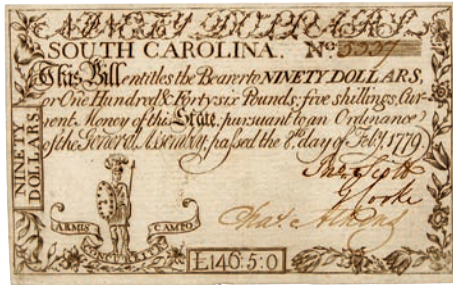 NINETY DOLLARS
SOUTH CAROLINA. No. 5557
This Bill entitles the Bearer to NINETY DOLLARS,
or One Hundred & Forty six Pounds; five shillings, Cur-
rent Money of this State, pursuant to an Ordinance
of the General Assembly, passed the 8th. day of Feby. 1779
NINETY DOLLARS
Scott
G Cooke
Chas. Atkins
ARMIS
CAMPO
£146:5:0